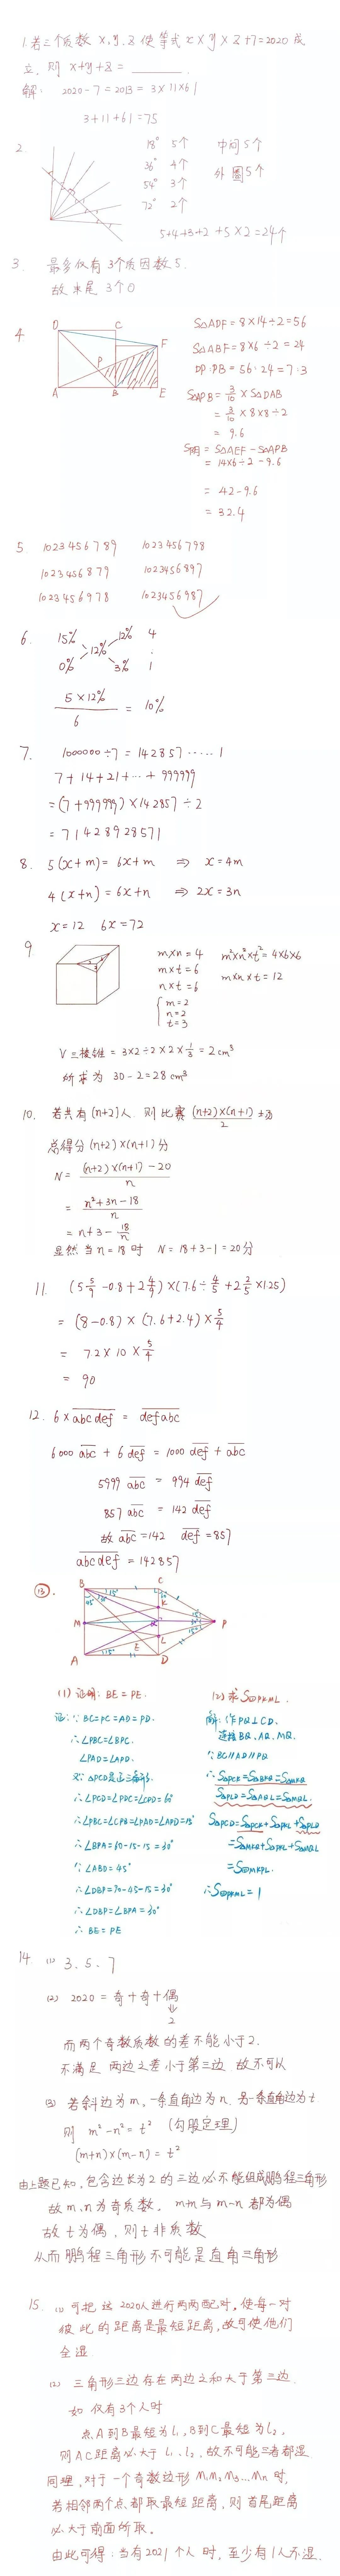 1.若三个质数 x,y,z 使等式 x×y×z+7=2020 成
立, 则 x+y+z= ______.
解: 2020-7=2013=3×11×61
3+11+61=75
2.
18° 5个 中间5个
36° 4个 外圈5个
54° 3个
72° 2个
5+4+3+2+5×2=24个
3. 最多仅有 3个质因数5.
故末尾 3个0
4
D C F
P
A B E
S△ADF=8×14÷2=56
S△ABF=8×6÷2=24
DP:PB=56:24=7:3
S△APB=3/10×S△DAB
=3/10×8×8÷2
=9.6
S阴=S△AEF-S△APB
=14×6÷2-9.6
=42-9.6
=32.4
5. 1023456789 1023456798
1023456879 1023456897
1023456978 1023456987
6. 15% 12% 4
12% :
0% 3% 1
5×12%/6 = 10%
7. 1000000÷7=142857·····1
7+14+21+···+999999
=(7+999999)×142857÷2
=71428928571
8. 5(x+m)=6x+m ⇒ x=4m
4(x+n)=6x+n ⇒ 2x=3n
x=12 6x=72
9.
m×n=4 m²×n²×t²=4×6×6
m×t=6 m×n×t=12
n×t=6
{ m=2
n=2
t=3
V三棱锥=3×2÷2×2×1/3=2cm³
所求为 30-2=28cm³
10. 若共有(n+2)人 则比赛 (n+2)×(n+1)/2 场
总得分(n+2)×(n+1)分
N=((n+2)×(n+1)-20)/n
=(n²+3n-18)/n
=n+3-18/n
显然当n=18时 N=18+3-1=20分
11. (5 5/9-0.8+2 4/9)×(7.6÷4/5+2 2/5×1.25)
=(8-0.8)×(7.6+2.4)×5/4
=7.2×10×5/4
=90
12. 6×abcdef=defabc
6000abc+6def=1000def+abc
5999abc=994def
857abc=142def
故abc=142 def=857
abcdef=142857
⑬.
B C
K
M P
L
A E D
(1) 证明: BE=PE.
证:∵BC=PC=AD=PD.
∴∠PBC=∠BPC.
∠PAD=∠APD.
又∵△PCD是正三角形.
∴∠PCD=∠PDC=∠CPD=60°
∴∠PBC=∠CPB=∠PAD=∠APD=15°
∴∠BPA=60-15-15=30°
∵∠ABD=45°
∴∠DBP=90-45-15=30°
∴∠DBP=∠BPA=30°
∴BE=PE
(2) 求S□PKML.
解:作PQ⊥CD.
连接BQ, AQ, MQ.
∵BC∥AD∥PQ
∴S△PCK=S△BKQ=S△MKQ
S△PLD=S△AQL=S△MQL.
S△PCD=S△PCK+S△PKL+S△PLD
=S△MKQ+S△PKL+S△MQL
=S□MKPL.
∴S□PKML=1
14. (1) 3、5、7
(2) 2020=奇+奇+偶
⇓
2
而两个奇数质数的差不能小于2.
不满足 两边之差小于第三边 故不可以
(3) 若斜边为m,一条直角边为n,另一条直角边为t
则 m²-n²=t² (勾股定理)
(m+n)×(m-n)=t²
由上题已知,包含边长为2的三边必不能组成鹏程三角形
故m、n为奇质数, m+n与m-n都为偶
故t为偶, 则t非质数
从而鹏程三角形不可能是直角三角形
15. (1) 可把这2020人进行两两配对,使每一对
彼此的距离是最短距离,故可使他们
全湿.
(2) 三角形三边存在两边之和大于第三边.
如 仅有3个人时
点A到B最短为l₁,B到C最短为l₂,
则AC距离必大于l₁、l₂,故不可能三者都湿
同理,对于一个奇数边形M₁M₂M₃...Mn时,
若相邻两个点都取最短距离,则首尾距离
必大于前面所取.
由此可得:当有2021个人时,至少有1人不湿.